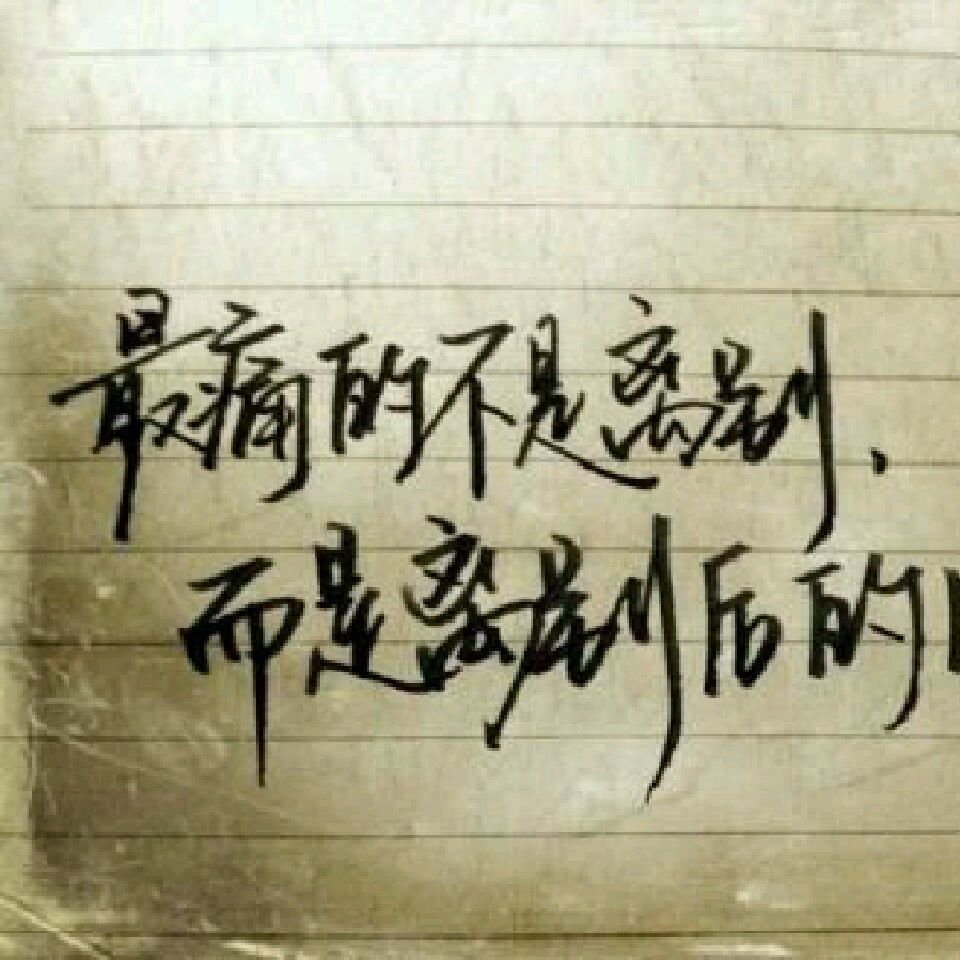 最痛的不是离别、
而是离别后的